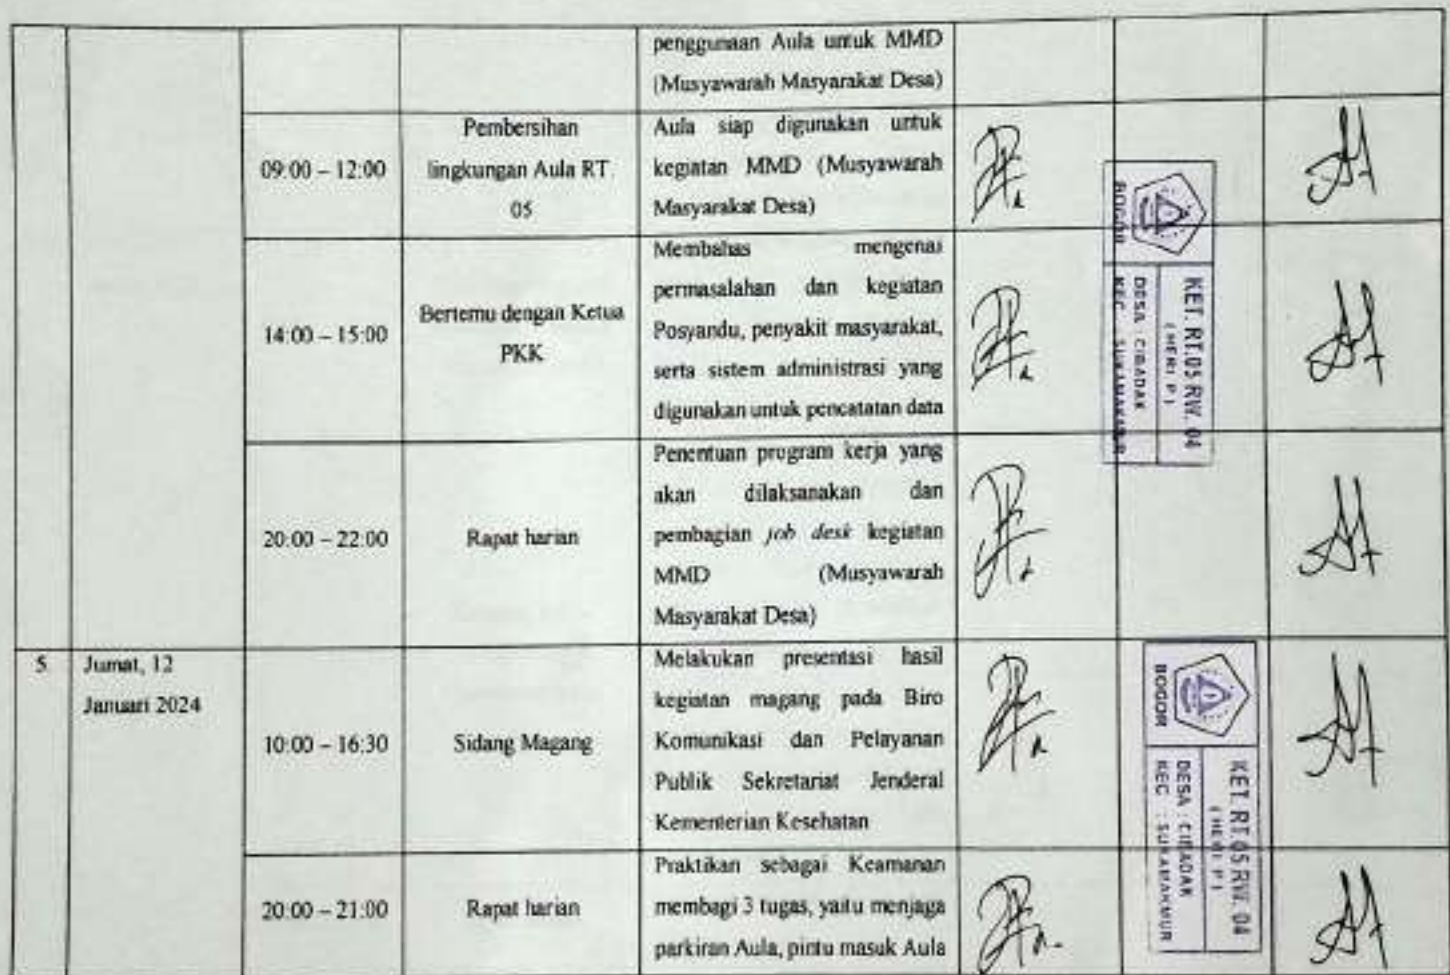 penggunaan Aula untuk MMD
(Musyawarah Masyarakat Desa)
09:00 – 12:00
Pembersihan
lingkungan Aula RT
05
Aula siap digunakan untuk
kegiatan MMD (Musyawarah
Masyarakat Desa)
14:00 – 15:00
Bertemu dengan Ketua
PKK
Membahas mengenai
permasalahan dan kegiatan
Posyandu, penyakit masyarakat,
serta sistem administrasi yang
digunakan untuk pencatatan data
BOGOR
KET. RT.05 RW. 04
( HERI P. )
DESA : CIBADAK
KEC : SUKAMAKMUR
20:00 – 22:00
Rapat harian
Penentuan program kerja yang
akan dilaksanakan dan
pembagian job desk kegiatan
MMD (Musyawarah
Masyarakat Desa)
5
Jumat, 12
Januari 2024
10:00 – 16:30
Sidang Magang
Melakukan presentasi hasil
kegiatan magang pada Biro
Komunikasi dan Pelayanan
Publik Sekretariat Jenderal
Kementerian Kesehatan
BOGOR
KET. RT.05 RW. 04
( HERI P. )
DESA : CIBADAK
KEC : SUKAMAKMUR
20:00 – 21:00
Rapat harian
Praktikan sebagai Keamanan
membagi 3 tugas, yaitu menjaga
parkiran Aula, pintu masuk Aula